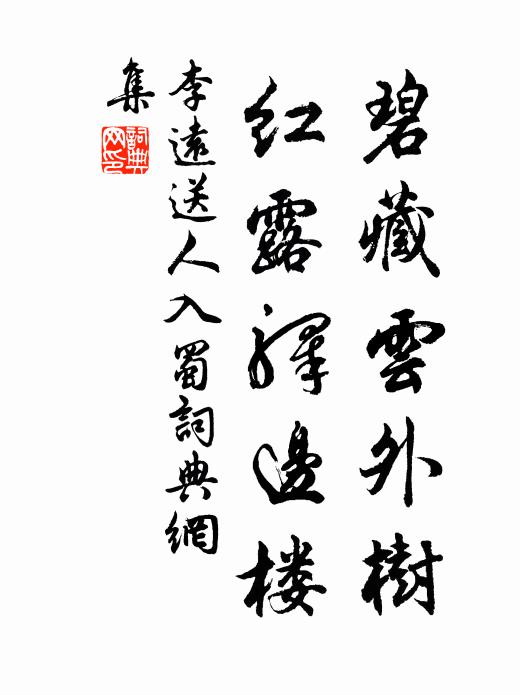 碧藏雲外樹
紅露驛邊楼
李遠送人入蜀詞典網
集
詞典
网印